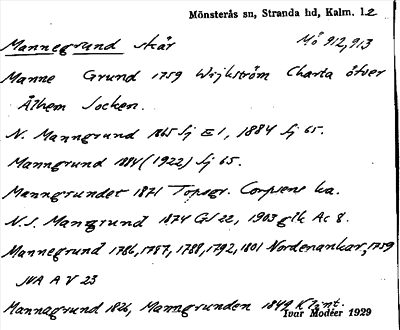 Mönsterås sn, Stranda hd, Kalm. l. 2
Mannegrund skär Mö 912,913
Manne Grund 1759 Wijkström Charta öfver
Ålhem Socken.
N. Manngrund 1865 Sj E 1, 1884 Sj 65.
Manngrund 1884 (1922) Sj 65.
Manngrundet 1871 Topogr. Corpsens ka.
N. S. Manngrund 1874 GS 22, 1903 glk Ac 8.
Mannegrund 1786, 1787, 1788, 1792, 1801 Nordenankar, 1759
JVA A V 23
Mannagrund 1826, Manngrunden 1849 Klint.
Ivar Modéer 1929